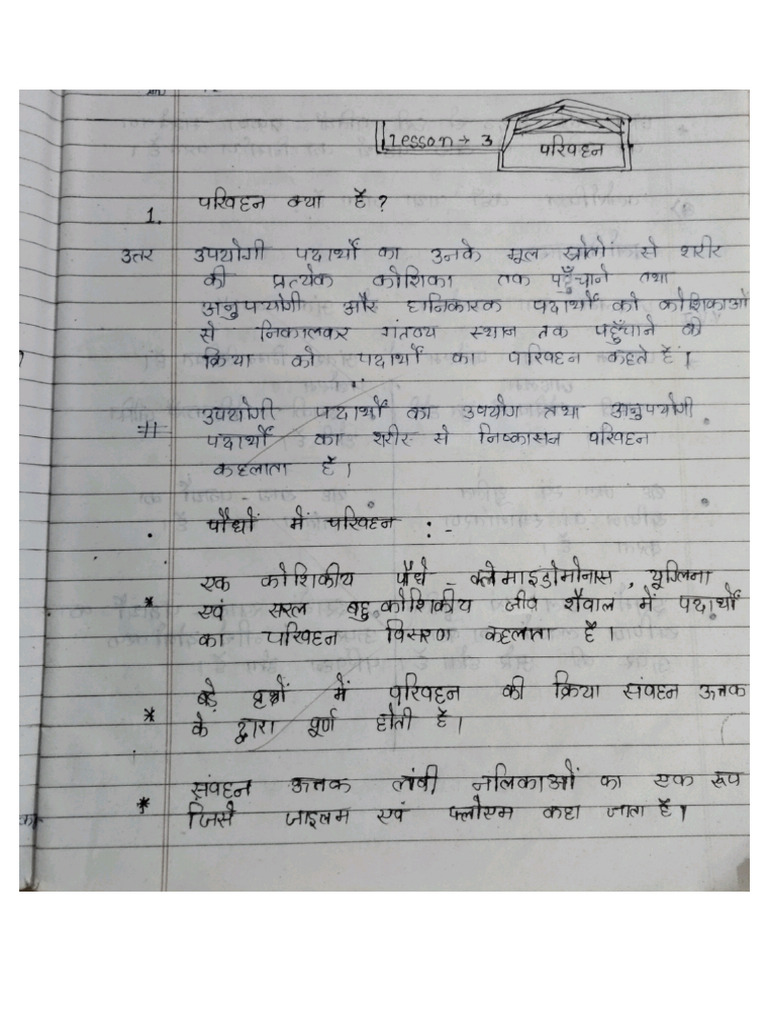 Lesson → 3 परिवहन
1. परिवहन क्या है?
उत्तर उपयोगी पदार्थों का उनके मूल स्रोतों से शरीर
की प्रत्येक कोशिका तक पहुँचाने तथा
अनुपयोगी और हानिकारक पदार्थों को कोशिकाओं
से निकालकर गंतव्य स्थान तक पहुँचाने की
क्रिया को पदार्थों का परिवहन कहते हैं।
# उपयोगी पदार्थों का उपयोग तथा अनुपयोगी
पदार्थों का शरीर से निष्कासन परिवहन
कहलाता है।
. पौधों में परिवहन :-
एक कोशिकीय पौधे - क्लेमाइडोमोनास, यूग्लिना
* एवं सरल बहुकोशिकीय जीव शैवाल में पदार्थों
का परिवहन विसरण कहलाता है।
बड़े वृक्षों में परिवहन की क्रिया संवहन ऊत्तक
* के द्वारा पूर्ण होती है।
संवहन ऊत्तक लंबी नलिकाओं का एक रूप
* जिसे जाइलम एवं फ्लोएम कहा जाता है।